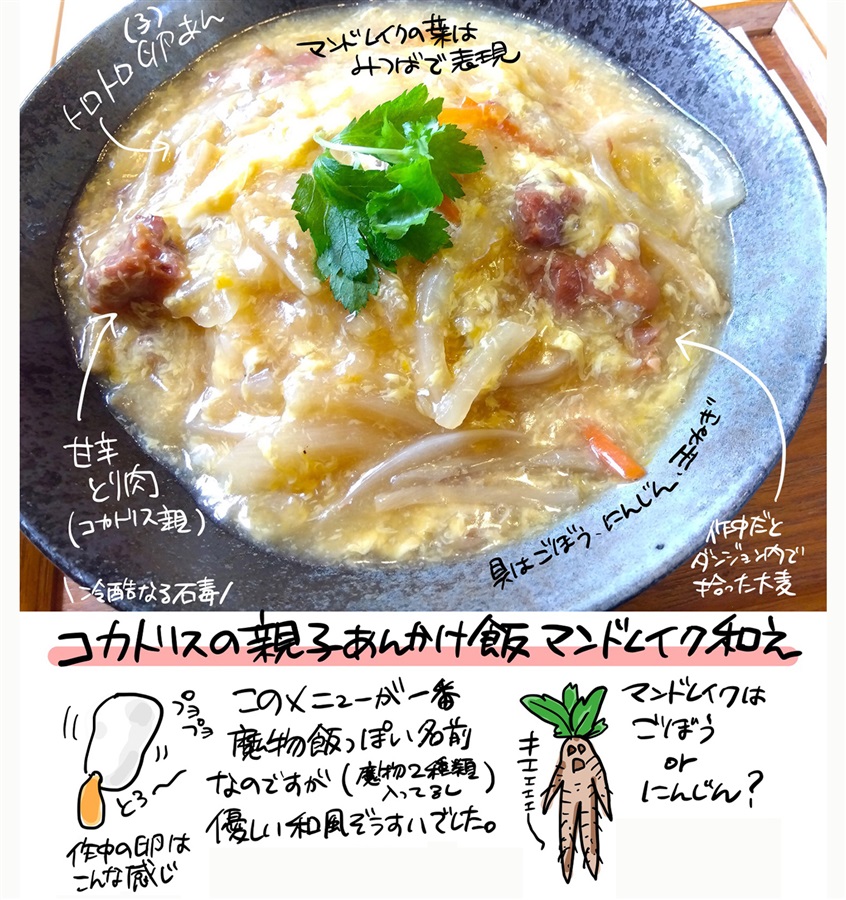 (子)
トロトロ卵あん
マンドレイクの葉は
みつばで表現
甘辛
とり肉
(コカトリス親)
\冷酷なる石毒/
具はごぼう、にんじん、玉ねぎ
作中だと
ダンジョン内で
拾った大麦
コカトリスの親子あんかけ飯 マンドレイク和え
プヨ
プヨ
とろ〜
作中の卵は
こんな感じ
このメニューが一番
魔物飯っぽい名前
なのですが(魔物2種類
入ってるし)
優しい和風ぞうすいでした。
キエエエエ
マンドレイクは
ごぼう
or
にんじん?